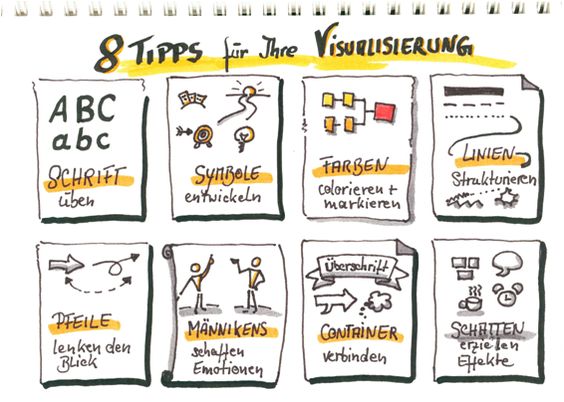 8 TIPPS für Ihre VISUALISIERUNG
ABC
abc
SCHRIFT
üben
SYMBOLE
entwickeln
FARBEN
colorieren +
markieren
LINIEN
Strukturieren
PFEILE
lenken den
Blick
MÄNNIKENS
schaffen
Emotionen
Überschrift
CONTAINER
verbinden
SCHATTEN
erzielen
Effekte